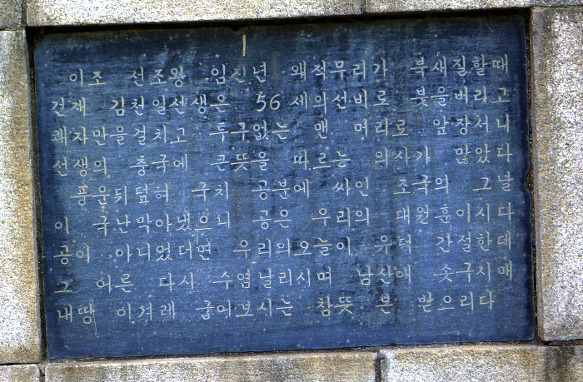 이조 선조왕 임진년 왜적무리가 북새질할때
건재 김천일선생은 56 세의선비로 붓을버리고
쾌자만을걸치고 투구없는 맨 머리로 앞장서니
선생의 충국에 큰뜻을 따르는 의사가 많았다
풍운뒤덮혀 국치 공분에 싸인 조국의 그날
이 국난막아냈으니 공은 우리의 대원훈이시다
공이 아니었더면 우리의오늘이 간절한데
그 어른 다시 수염날리시며 남산에 솟구치매
내땅 이겨레 굽어보시는 참뜻 은 받으리다